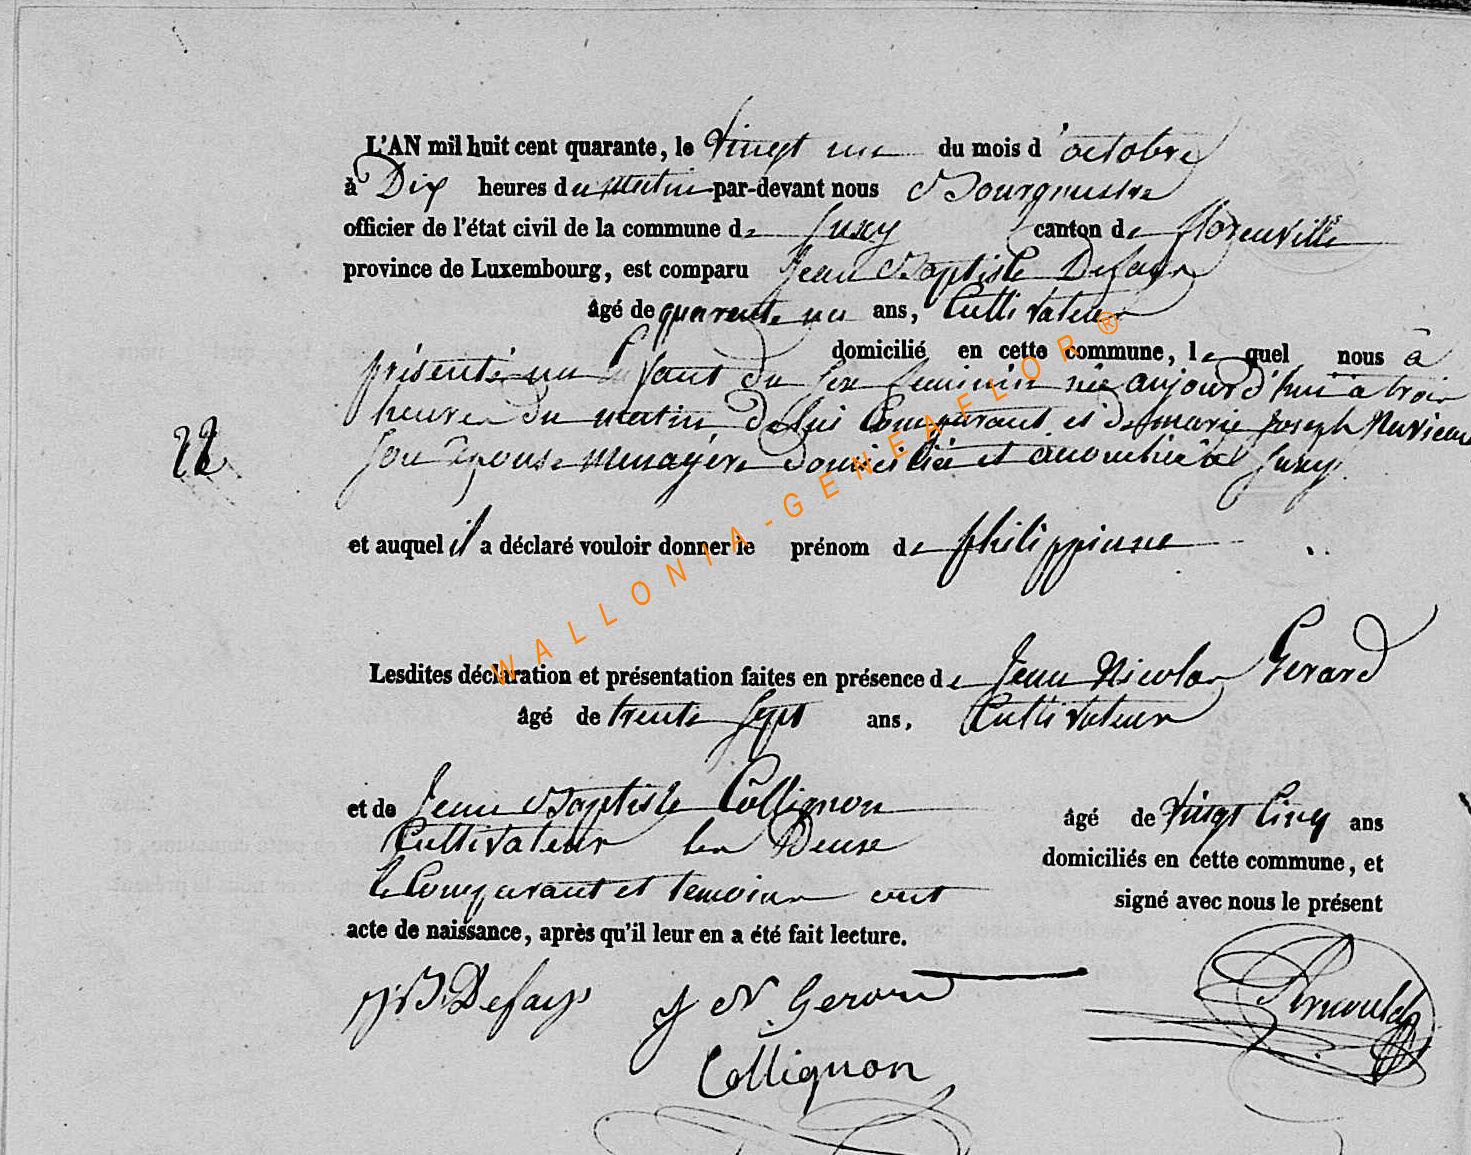 L'AN mil huit cent quarante, le vingt un du mois d'octobre
à Dix heures du matin par-devant nous Bourgmestre
officier de l'état civil de la commune de Suxy canton de florenville
province de Luxembourg, est comparu Jean Baptiste Defays
âgé de quarente un ans, Cultivateur
domicilié en cette commune, lequel nous à
présenté un Enfant du sex feminin née aujourd'hui à trois
heures du matin de lui Comparant et de marie joseph
22
son Epouse Menagère domiciliée et à Suxy.
et auquel il a déclaré vouloir donner le prénom de philippinne
WALLONIA-GENEAFLOR®
Lesdites déclaration et présentation faites en présence de Jean Nicolas Gerard
âgé de trente sept ans, Cultivateur
et de Jean Baptiste Collignon âgé de vingt Cinq ans
Cultivateur les Deux domiciliés en cette commune, et
le Comparant et temoins ont signé avec nous le présent
acte de naissance, après qu'il leur en a été fait lecture.
J.B. Defays J N. Gerard Arnould
Collignon